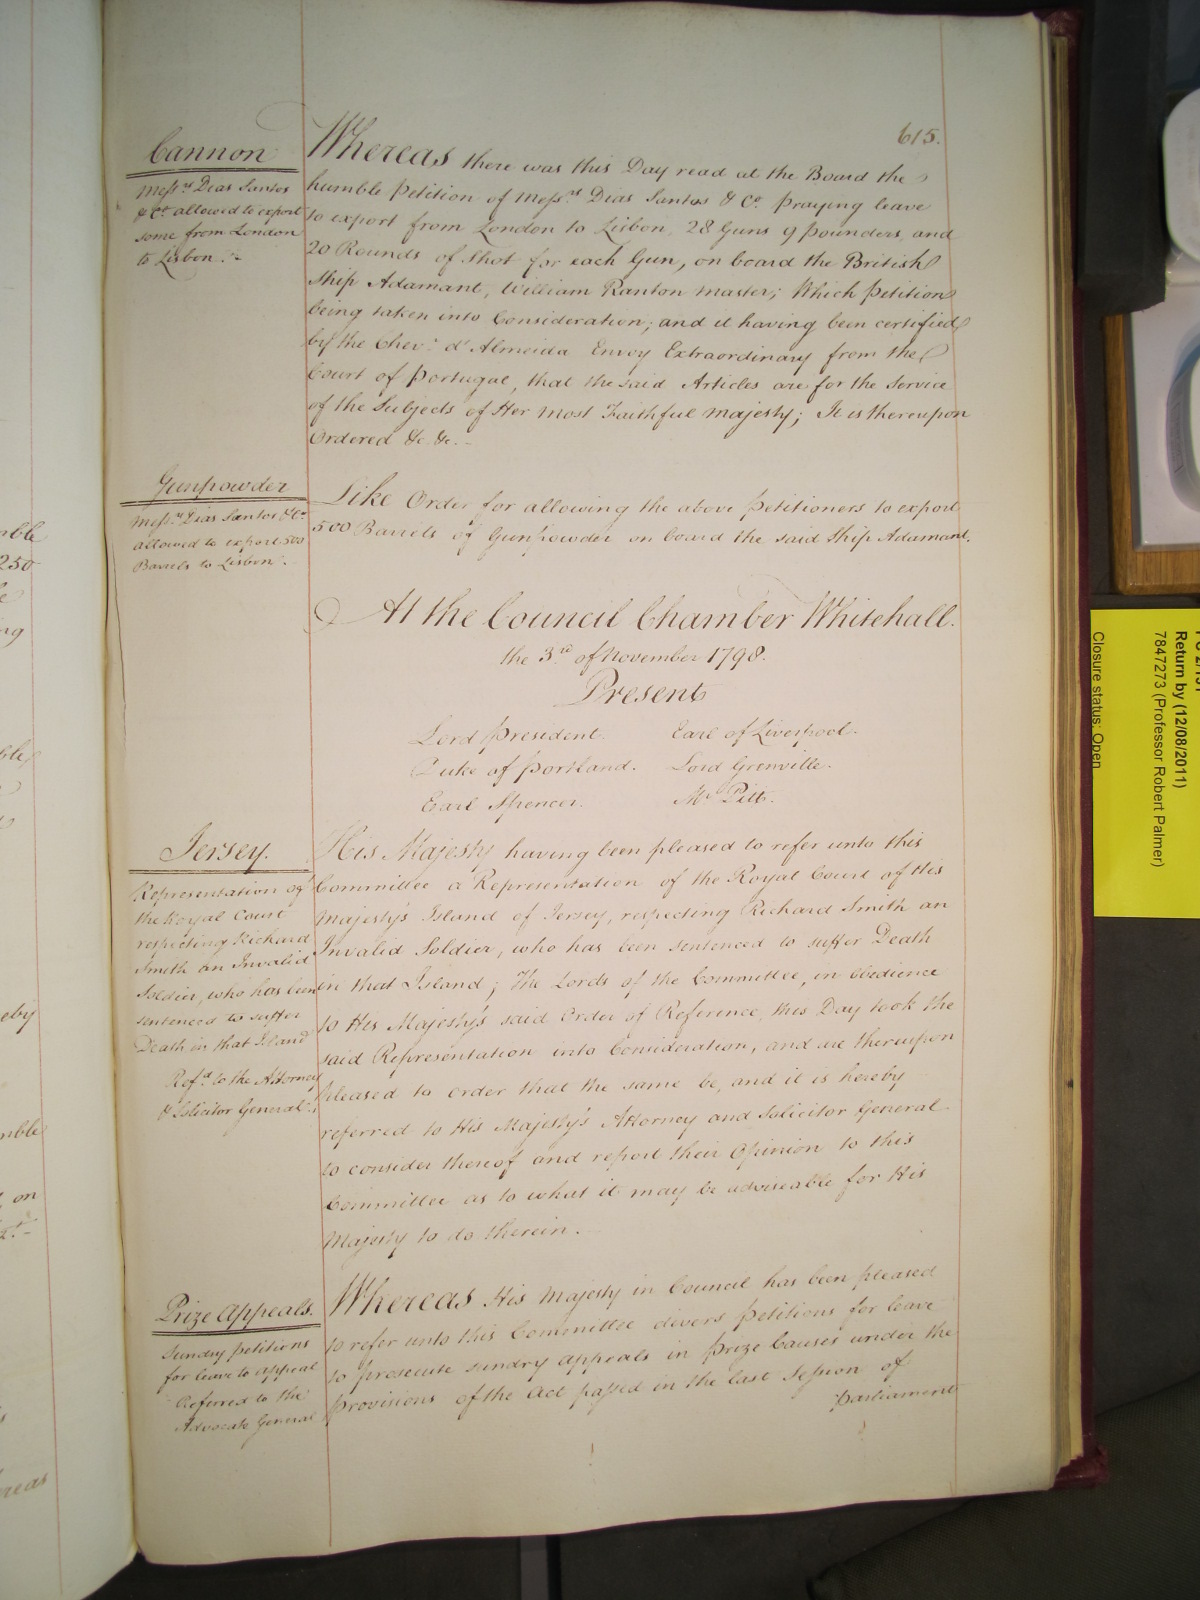 615.
Cannon
Mess.rs Dias Santos
& Co. allowed to export
some from London
to Lisbon.
Whereas there was this Day read at the Board the
humble Petition of Mess.rs Dias Santos & Co. praying leave
to export from London to Lisbon, 28 Guns 9 pounders, and
20 Rounds of Shot for each Gun, on board the British
Ship Adamant, William Ranton Master; Which Petition
being taken into Consideration; and it having been certified
by the Chev.r d'Almeida Envoy Extraordinary from the
Court of Portugal, that the said Articles are for the Service
of the Subjects of Her Most Faithful Majesty; It is thereupon
Ordered &c. &c.
Gunpowder
Mess.rs Dias Santos & Co.
allowed to export 500
Barrels to Lisbon.
Like Order for allowing the above Petitioners to export
500 Barrels of Gunpowder on board the said Ship Adamant.
At the Council Chamber Whitehall.
the 3.rd of November 1798.
Present
Lord President. Earl of Liverpool.
Duke of Portland. Lord Grenville.
Earl Spencer. Mr. Pitt.
Jersey.
Representation of
the Royal Court
respecting Richard
Smith an Invalid
Soldier, who has been
sentenced to suffer
Death in that Island
Ref.d to the Attorney
& Solicitor General.
His Majesty having been pleased to refer unto this
Committee a Representation of the Royal Court of His
Majesty's Island of Jersey, respecting Richard Smith an
Invalid Soldier, who has been sentenced to suffer Death
in that Island; The Lords of the Committee, in obedience
to His Majesty's said Order of Reference, this Day took the
said Representation into Consideration, and are thereupon
pleased to order that the same be, and it is hereby
referred to His Majesty's Attorney and Solicitor General
to consider thereof and report their Opinion to this
Committee as to what it may be adviseable for His
Majesty to do therein.
Prize Appeals.
Sundry Petitions
for leave to appeal
Referred to the
Advocate General
Whereas His Majesty in Council has been pleased
to refer unto this Committee divers Petitions for leave
to prosecute sundry Appeals in Prize Causes under the
Provisions of the Act passed in the last Session of
Parliament
Return by (12/08/2011)
7847273 (Professor Robert Palmer)
Closure status: Open